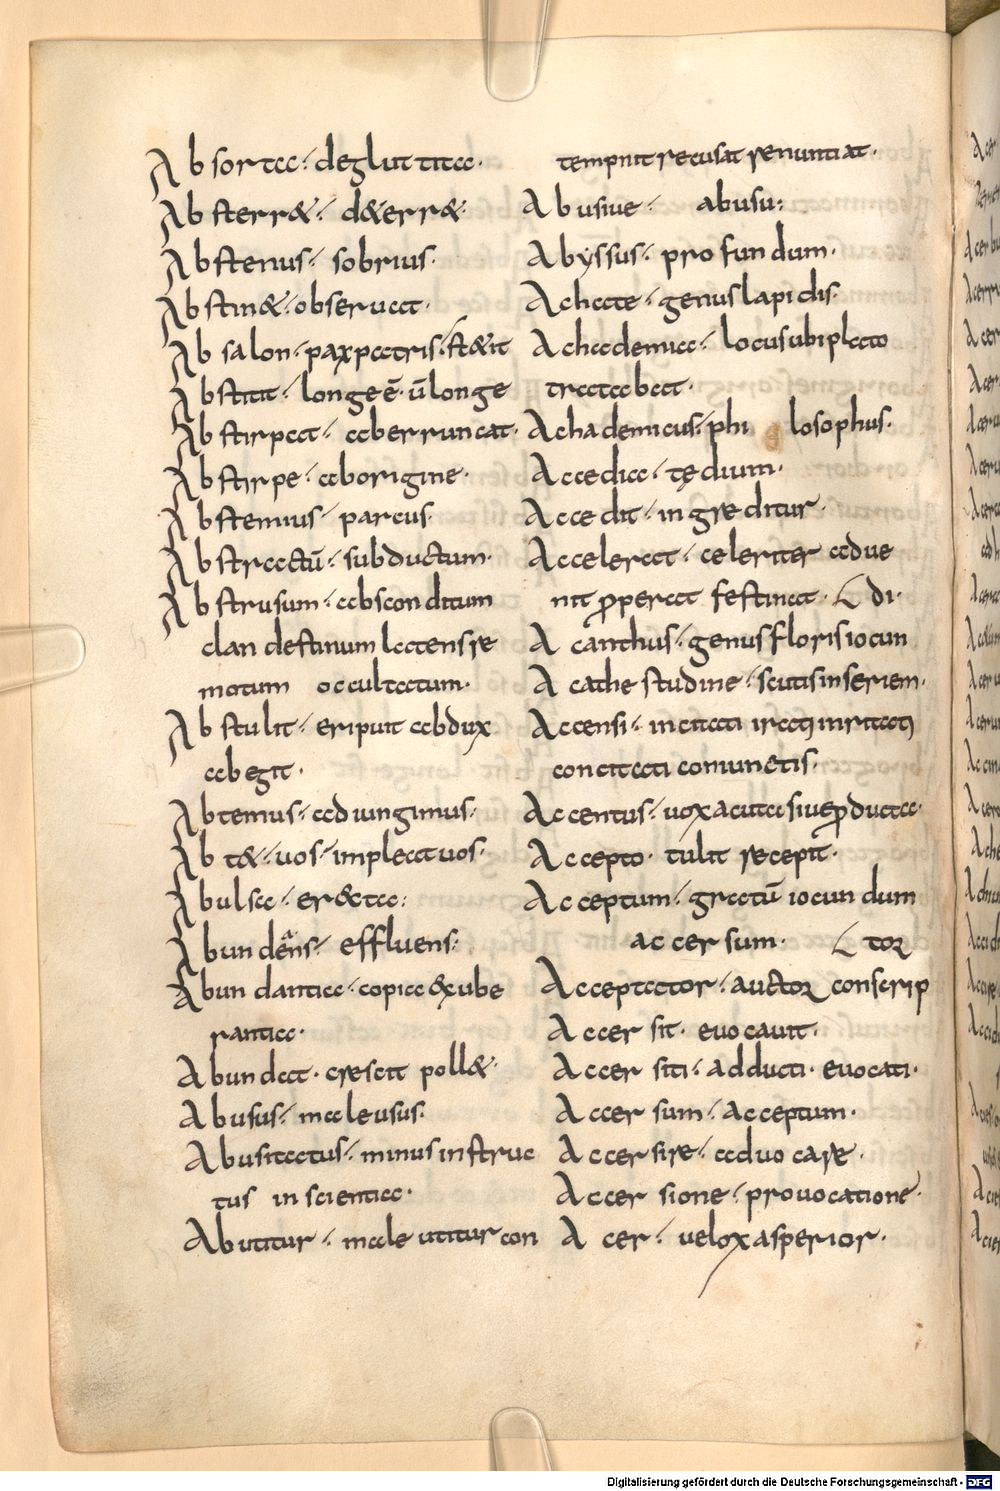 Absorta· deglutita·
Absterr&· d&err&·
Abstenus· sobrius·
Abstin&· obseruat·
Absalon· pax patris· st&it
Abstitit· longe ē· ū longe
Abstirpat· aberruncat·
Abstirpe· ab origine·
Abstemius· parcus·
Abstractū· subductum·
Abstrusum· absconditum
clandestinum latens re
motum occultatum·
Abstulit· eripuit abdux
abegit·
Abtemus· adiungimus·
Abt& uos· impleat uos·
Abulsa· er&ta:
Abundens· effluens·
Abundantia· copia &xube
rantia·
Abundat· crescit poll&·
Abusus· male usus·
Abusitatus· minus instruc
tus in scientia·
Abutitur· male utitur con
tempnit recusat renuntiat·
Abusiue· abusu:
Abyssus· profundum·
Achate· genus lapidis·
Achademia· locus ubi plato
tractabat·
Achademicus· philosophus·
Accedia· tędium·
Accedit· ingreditur·
Accelerat· celeriter adue
nit ꝓperat festinat· di·
Acanthus· genus floris iocun
Acathe studine· scutis in seriem·
Accensi· incitati iratiꝗ inritatiꝗ
concitati comunetis·
Accentus· uox acuta siue ꝓducta·
Accepto· tulit recepit·
Acceptum· gratū iocundum
accersum· tor
Acceptator· auctor conscrip
Accersit· euocauit·
Accersiti· adducti· euocati·
Accersum· acceptum·
Accersire· aduocare·
Accersione· prouocatione·
Acer· uelox asperior·
Digitalisierung gefördert durch die Deutsche Forschungsgemeinschaft - DFG